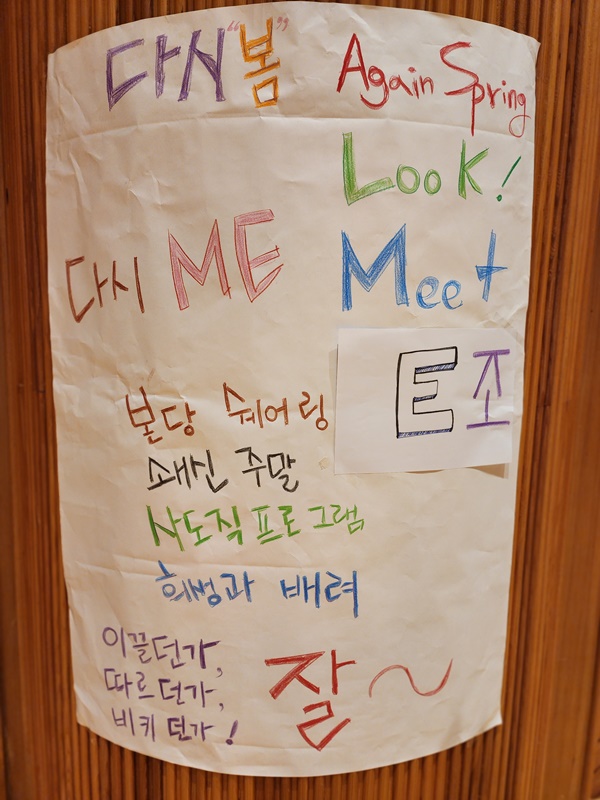 다시 "봄" Again Spring
Look!
다시 ME Meet
E조
본당 쉐어링
쇄신 주말
사도직 프로그램
희생과 배려
이끌던가,
따르던가,
비키던가!
잘~